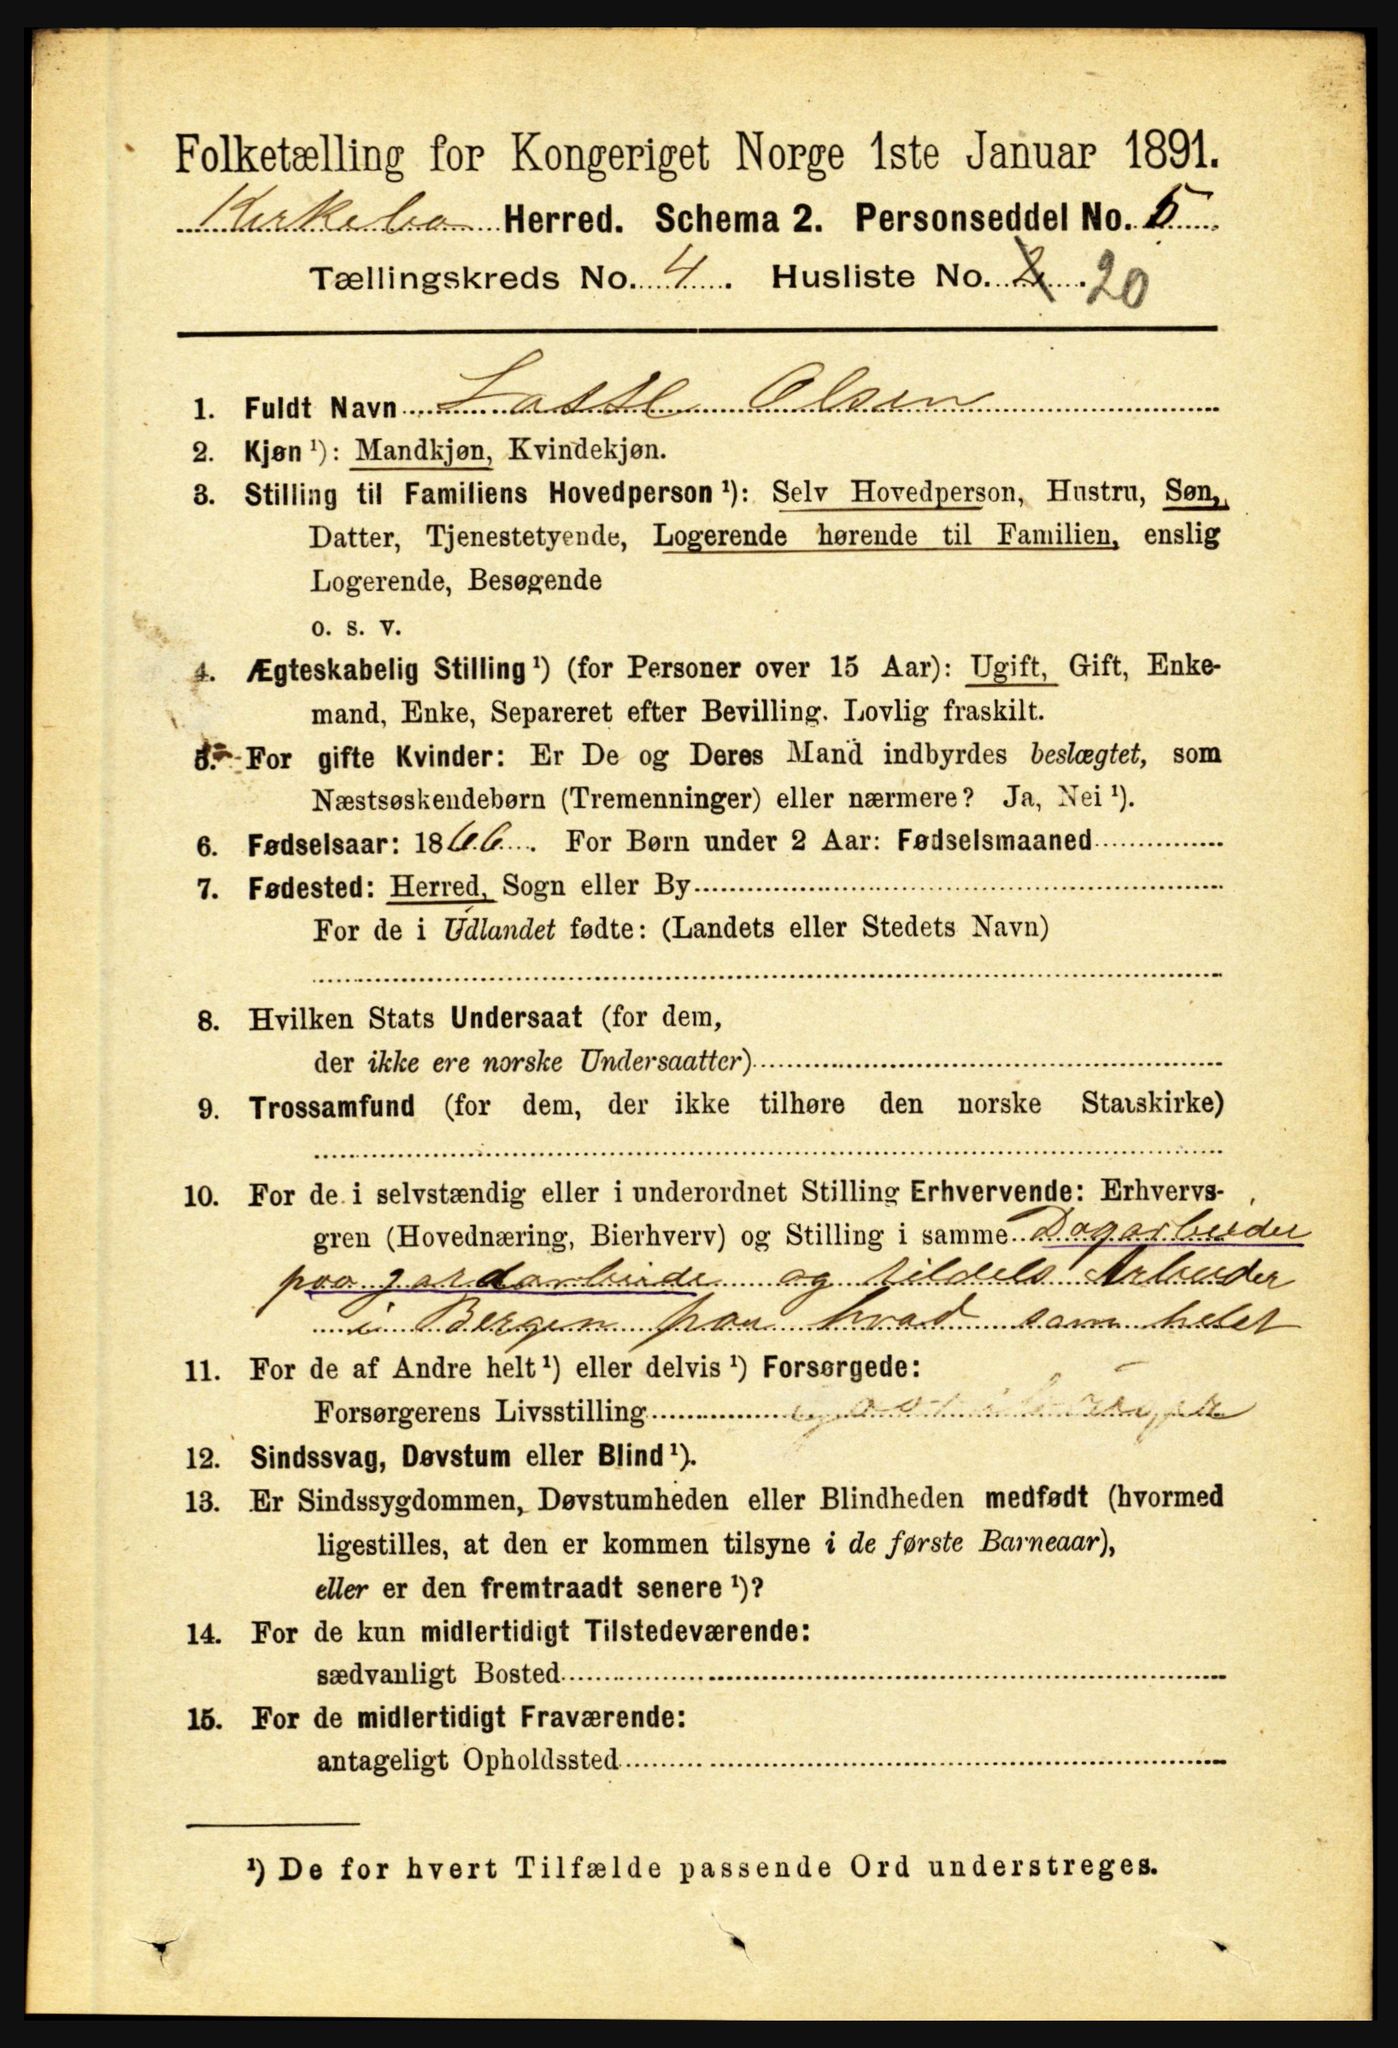 Folketælling for Kongeriget Norge 1ste Januar 1891.
Kirkebø Herred. Schema 2. Personseddel No. 5
Tællingskreds No. 4. Husliste No. 2. 20
1. Fuldt Navn Lasse Olsen
2. Kjøn ¹): Mandkjøn, Kvindekjøn.
3. Stilling til Familiens Hovedperson ¹): Selv Hovedperson, Hustru, Søn,
Datter, Tjenestetyende, Logerende hørende til Familien, enslig
Logerende, Besøgende
o. s. v.
4. Ægteskabelig Stilling ¹) (for Personer over 15 Aar): Ugift, Gift, Enke-
mand, Enke, Separeret efter Bevilling. Lovlig fraskilt.
5. For gifte Kvinder: Er De og Deres Mand indbyrdes beslægtet, som
Næstsøskendebørn (Tremenninger) eller nærmere? Ja, Nei ¹).
6. Fødselsaar: 1866. For Børn under 2 Aar: Fødselsmaaned
7. Fødested: Herred, Sogn eller By
For de i Udlandet fødte: (Landets eller Stedets Navn)
8. Hvilken Stats Undersaat (for dem,
der ikke ere norske Undersaatter)
9. Trossamfund (for dem, der ikke tilhøre den norske Statskirke)
10. For de i selvstændig eller i underordnet Stilling Erhvervende: Erhvervs-
gren (Hovednæring, Bierhverv) og Stilling i samme Dagarbeider
paa jordarbeide og tildels Arbeider
i Bergen paa hvad som helst
11. For de af Andre helt ¹) eller delvis ¹) Forsørgede:
Forsørgerens Livsstilling
12. Sindssvag, Døvstum eller Blind ¹).
13. Er Sindssygdommen, Døvstumheden eller Blindheden medfødt (hvormed
ligestilles, at den er kommen tilsyne i de første Barneaar),
eller er den fremtraadt senere ¹)?
14. For de kun midlertidigt Tilstedeværende:
sædvanligt Bosted
15. For de midlertidigt Fraværende:
antageligt Opholdssted
¹) De for hvert Tilfælde passende Ord understreges.